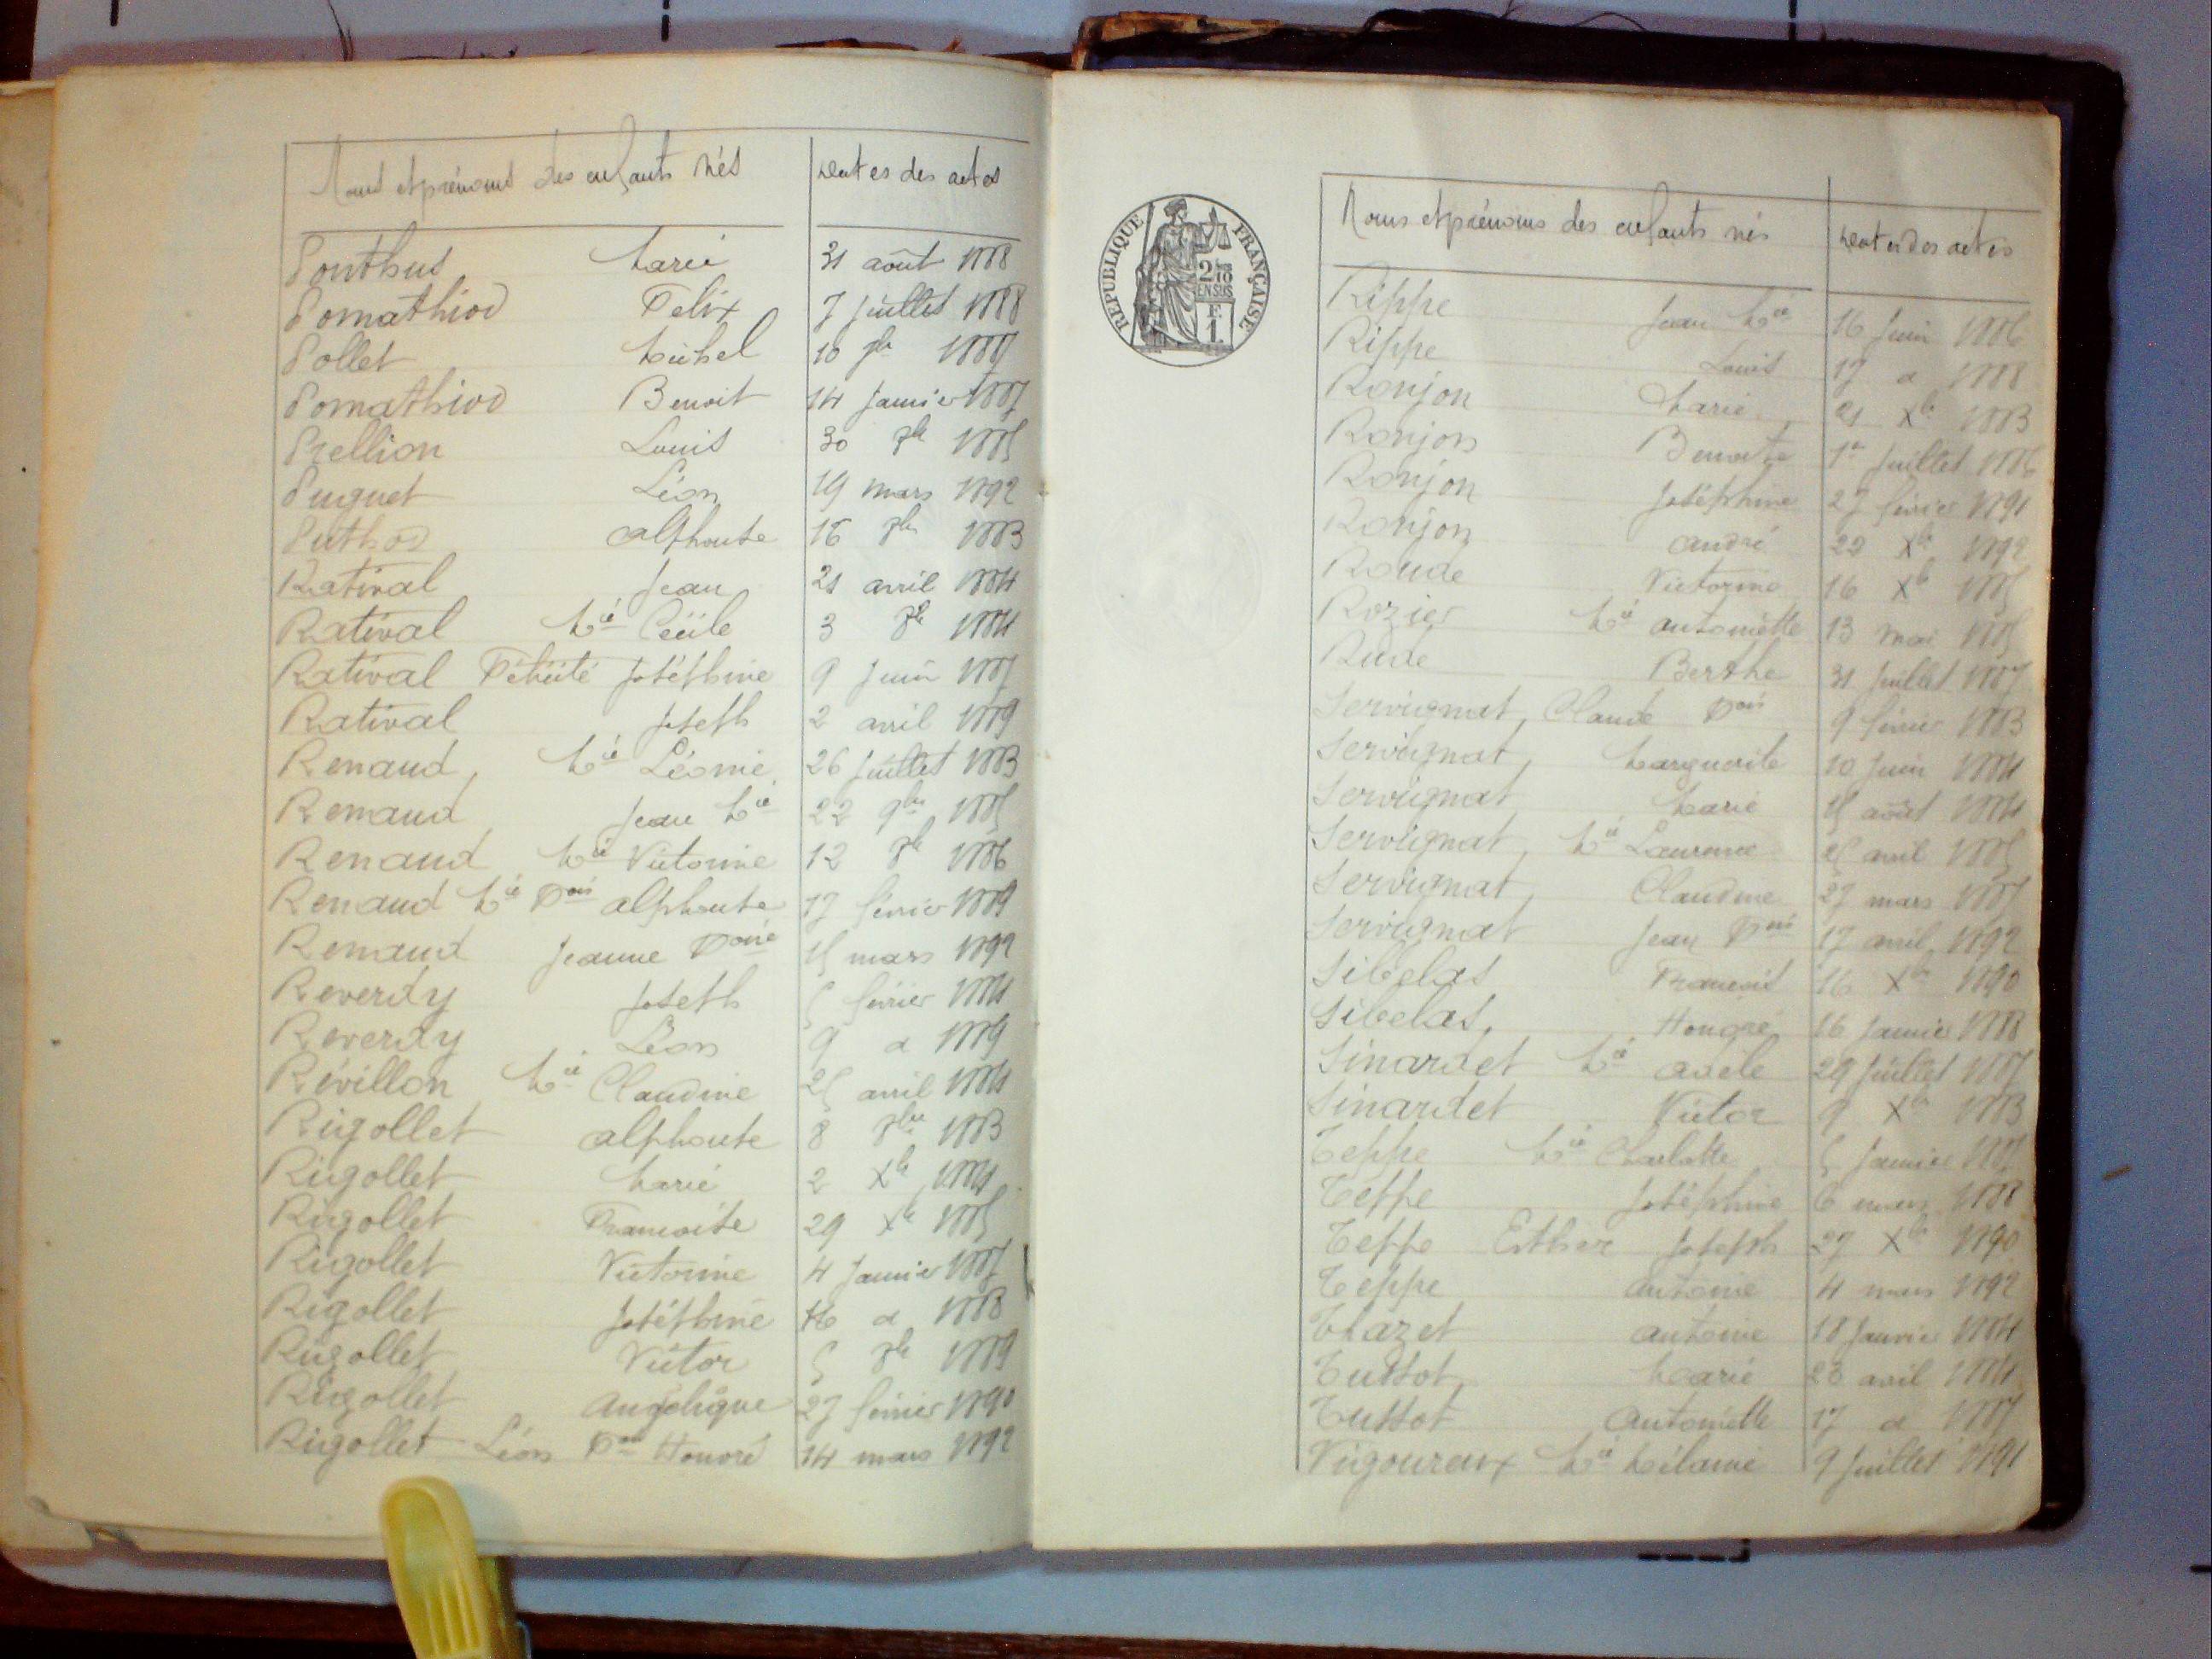 Noms et prénoms des enfants nés Dates des actes
Ponthus Marie 31 août 1888
Pomathiod Felix 7 juillet 1888
Pollet Michel 10 1887
Pomathiod Benoit 14 Janvier 1887
Prellion Louis 30 8bre 1885
Puguet Léon 19 mars 1892
Puthod alphonse 16 8bre 1883
Ratival Jean 21 avril 1884
Ratival Mie Cécile 3 8bre 1884
Ratival Félicité Joséphine 9 Juin 1887
Ratival Joseph 2 avril 1889
Renaud, Mie Léonie 26 Juillet 1883
Renaud Jean Mie 22 9bre 1885
Renaud Mie Victorine 12 8bre 1886
Renaud Mie Fois alphonse 17 février 1889
Renaud Jeanne Foise 15 mars 1892
Reverdy Joseph 5 février 1884
Reverdy Léon 9 d 1889
Révillon Mie Claudine 25 avril 1884
Rigollet alphonse 8 8bre 1883
Rigollet Marie 2 Xbre 1884
Rigollet Francoise 29 Xbre 1885
Rigollet Victorine 4 Janvier 1887
Rigollet Joséphine 16 d 1888
Rigollet Victor 5 8bre 1889
Rigollet Angélique 27 février 1890
Rigollet Léon Fois Honoré 14 mars 1892
REPUBLIQUE FRANÇAISE
2/10
EN SUS
F.
1.
Noms et prénoms des enfants nés Dates des actes
Rippe Jean Mie 16 Juin 1886
Rippe Louis 17 d 1888
Ronjon Marie 21 Xbre 1883
Ronjon Benoite 1er Juillet 1886
Ronjon Joséphine 27 février 1891
Ronjon André 22 Xbre 1892
Roude Victorine 16 Xbre 1885
Rozier Mie antoinette 13 mai 1885
Rude Berthe 31 Juillet 1887
Servignat, Claude Fois 9 février 1883
Servignat, Marguerite 10 Juin 1884
Servignat Marie 15 août 1884
Servignat, Mie Laurence 25 avril 1885
Servignat Claudine 27 mars 1887
Servignat Jean Fois 17 avril 1892
Sibelas Francois 16 Xbre 1890
Sibelas, Honoré 16 Janvier 1888
Sinardet Mie adèle 29 Juillet 1887
Sinardet Victor 9 Xbre 1883
Teppe Mie Charlotte 5 Janvier 1887
Teppe Joséphine 6 mars 1888
Teppe Esther Joseph 27 Xbre 1890
Teppe antoine 4 mars 1892
Thazet antoine 18 Janvier 1884
Tussot Marie 28 avril 1884
Tussot Antoinette 17 d 1887
Vigoureux Mie Mélanie 9 Juillet 1891